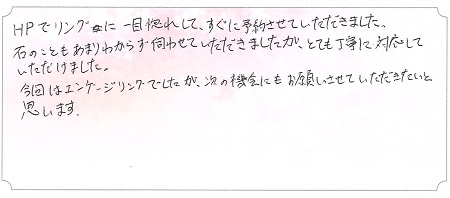 HPでリングに一目惚れして、すぐに予約させていただきました。
石のこともあまりわからず伺わせていただきましたが、とても丁寧に対応して
いただけました。
今回はエンゲージリングでしたが、次の機会にもお願いさせていただきたいと
思います。